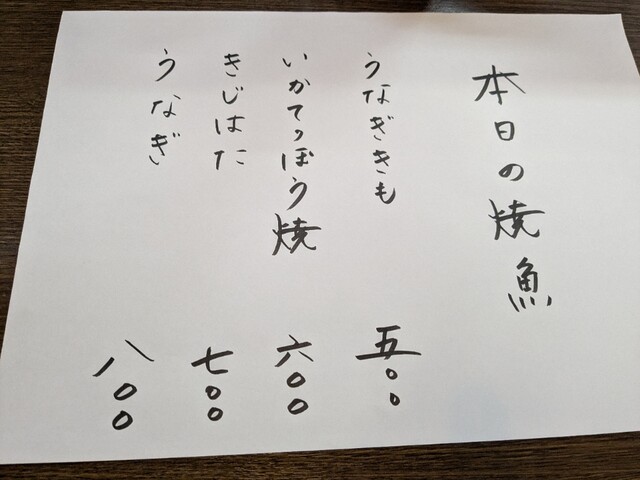 本日の焼魚
うなぎきも 五〇〇
いかてっぽう焼 六〇〇
きじはた 七〇〇
うなぎ 八〇〇